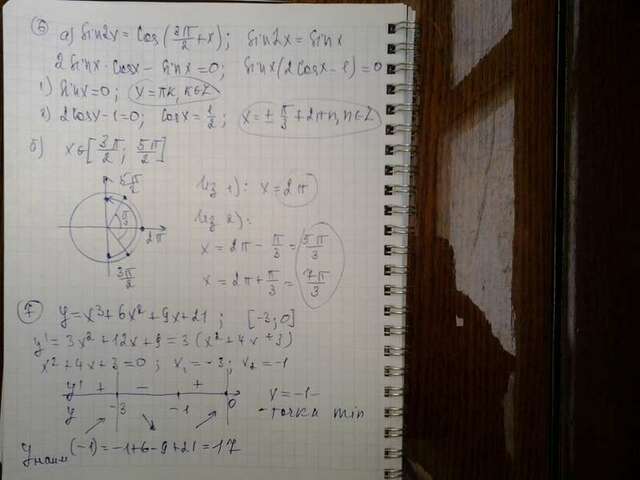 6 а) sin2x = cos(3π/2 + x); sin2x = sinx
2 sinx · cosx - sinx = 0; sinx(2cosx - 1) = 0
1) sinx = 0; x = πk, k∈Z
2) 2cosx - 1 = 0; cosx = 1/2; x = ± π/3 + 2πn, n∈Z
б) x∈[3π/2; 5π/2]
5π/2
π/3
2π
3π/2
из 1): x = 2π
из 2):
x = 2π - π/3 = 5π/3
x = 2π + π/3 = 7π/3
7 y = x³ + 6x² + 9x + 21; [-3; 0]
y' = 3x² + 12x + 9 = 3(x² + 4x + 3)
x² + 4x + 3 = 0; x₁ = -3; x₂ = -1
y' + - +
y -3 -1 0
x = -1 -
- точка min
yнаим(-1) = -1 + 6 - 9 + 21 = 17